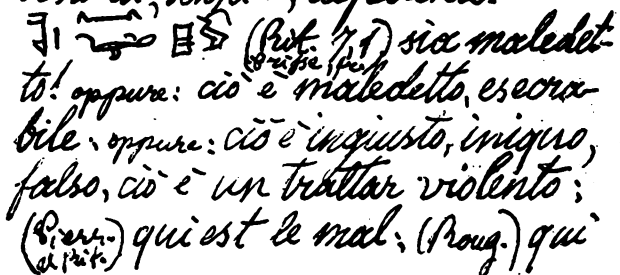 (Rit. 7,1) sia maledet-
to! oppure: ciò è maledetto, esecra-
bile; oppure: ciò è ingiusto, iniquo,
falso, ciò è un trattar violento;
(Pierr. al Rit.) qui est le mal; (Roug.) qui